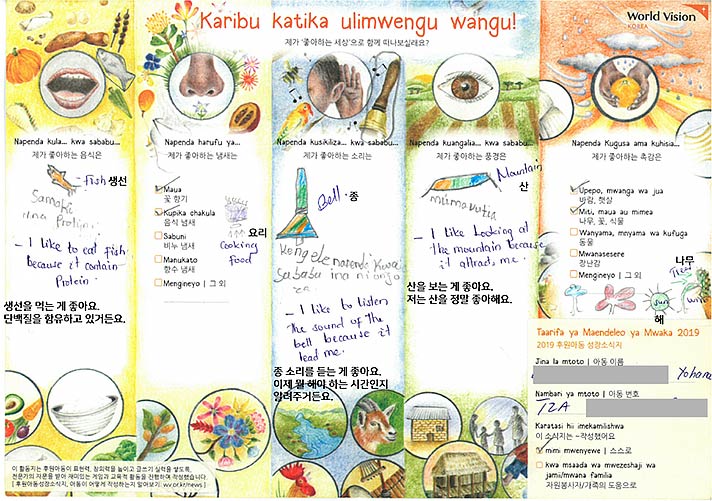 Karibu katika ulimwengu wangu!
제가 '좋아하는 세상'으로 함께 떠나보실래요?
World Vision
KOREA
Napenda kula... kwa sababu...
제가 좋아하는 음식은
Fish 생선
Samaki
ina Protini
- I like to eat fish
because it contain
Protein.
생선을 먹는 게 좋아요.
단백질을 함유하고 있거든요.
Napenda harufu ya...
제가 좋아하는 냄새는
Maua
꽃 향기
Kupika chakula
음식 냄새
Sabuni
비누 냄새
Manukato
향수 냄새
Mengineyo | 그 외
요리
Cooking
food
Napenda kusikiliza... kwa sababu...
제가 좋아하는 소리는
Bell · 종
Kengele napenda kwa
Sababu ina
- I like to listen
the sound of the
bell because it
lead me.
종 소리를 듣는 게 좋아요.
이제 뭘 해야 하는 시간인지
알려주거든요.
Napenda kuangalia... kwa sababu...
제가 좋아하는 풍경은
Mountain
산
mlima
- I like Looking at
the mountain because
it attracts me.
산을 보는 게 좋아요.
저는 산을 정말 좋아해요.
Napenda Kugusa ama kuhisia...
제가 좋아하는 촉감은
Upepo, mwanga wa jua
바람, 햇살
Miti, maua au mimea
나무, 꽃, 식물
Wanyama, mnyama wa kufuga
동물
Mwanasesere
장난감
Mengineyo | 그 외
나무
Tree
sun
해
Taarifa ya Maendeleo ya Mwaka 2019
2019 후원아동 성장소식지
Jina la mtoto | 아동 이름
Yohana
Nambari ya mtoto | 아동 번호
TZA
Karatasi hii imekamilishwa
이 소식지는 -작성했어요
mimi mwenyewe | 스스로
kwa msaada wa mwezeshaji wa
jamii/mwana familia
자원봉사자/가족의 도움으로
이 활동지는 후원아동이 표현력, 창의력을 높이고 글쓰기 실력을 쌓도록,
전문가의 자문을 받아 재미있는 게임과 교육적 활동을 진행하며 작성했습니다.
[ 후원아동성장소식지, 아동이 어떻게 작성하는지 알아보기: wv.or.kr/news ]